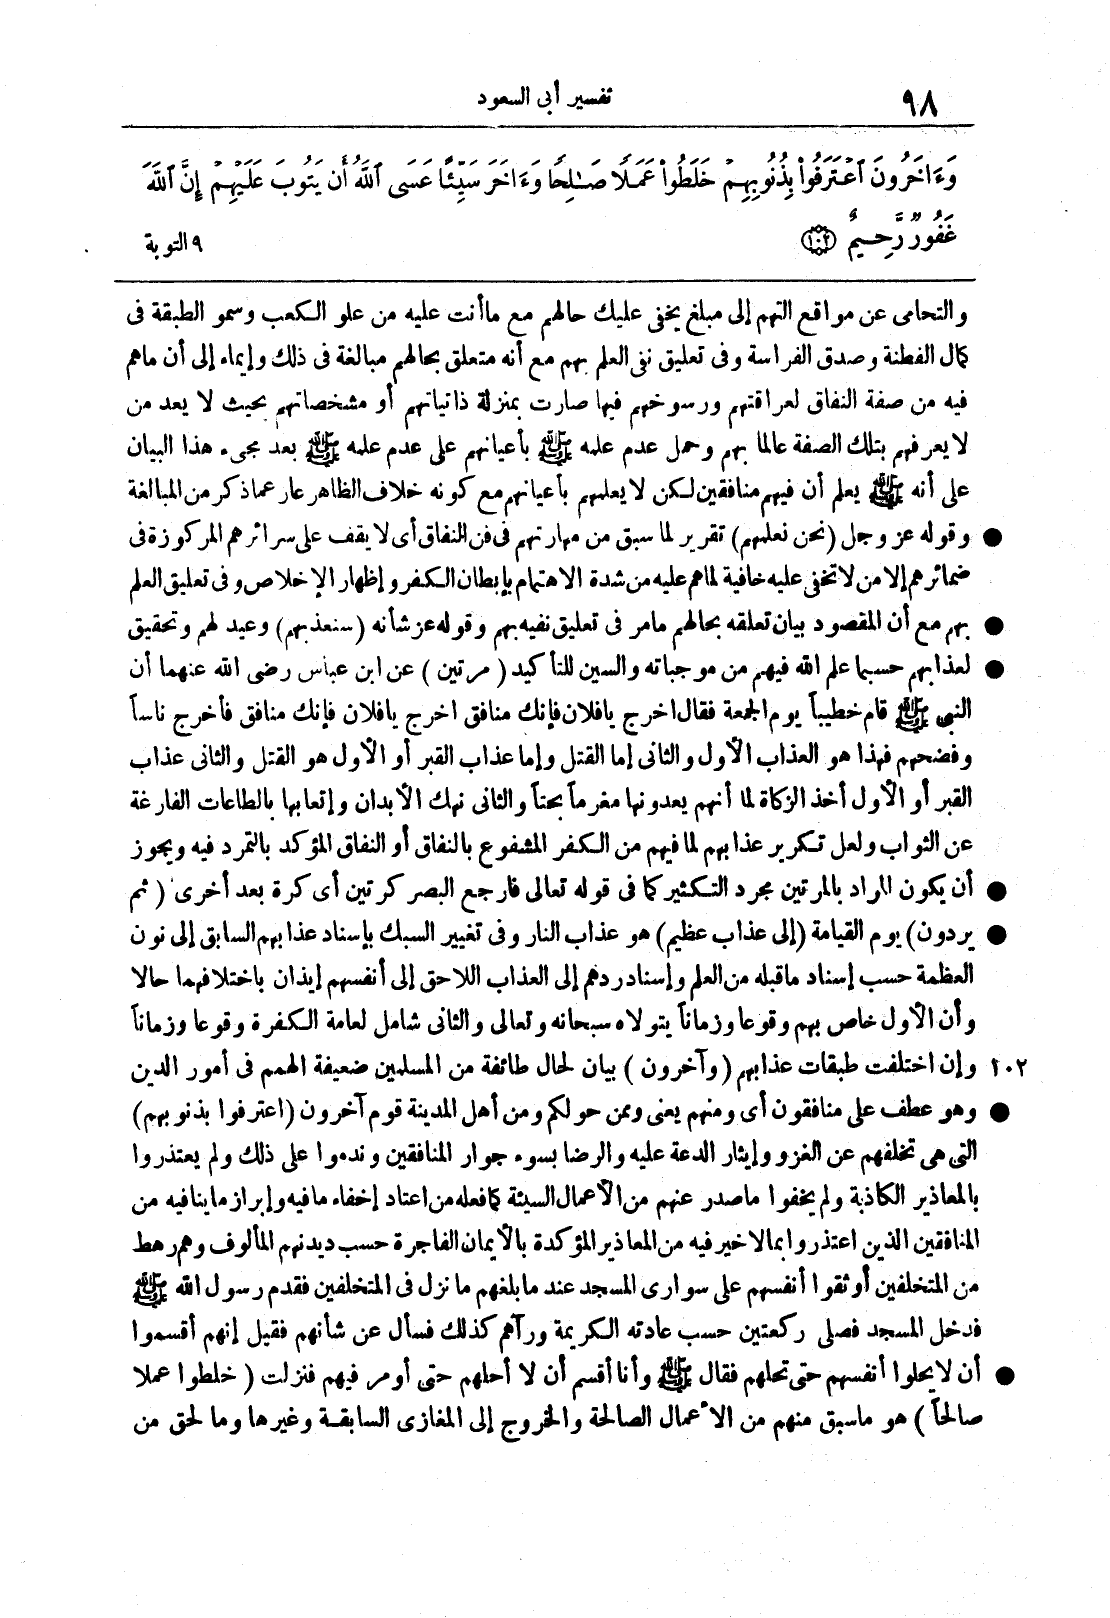 ٩٨
تفسير أبى السعود
وَءَاخَرُونَ ٱعْتَرَفُوا۟ بِذُنُوبِهِمْ خَلَطُوا۟ عَمَلًا صَٰلِحًا وَءَاخَرَ سَيِّئًا عَسَى ٱللَّهُ أَن يَتُوبَ عَلَيْهِمْ إِنَّ ٱللَّهَ
غَفُورٌ رَّحِيمٌ ١٠٢
٩ التوبة
والتحامى عن مواقع التهم إلى مبلغ يخفى عليك حالهم مع ماأنت عليه من علو الكعب وسمو الطبقة فى
كمال الفطنة وصدق الفراسة وفى تعليق نفى العلم بهم مع أنه متعلق بحالهم مبالغة فى ذلك وإيماء إلى أن ماهم
فيه من صفة النفاق لعراقتهم ورسوخهم فيها صارت بمنزلة ذاتياتهم أو مشخصاتهم بحيث لا يعد من
لا يعرفهم بتلك الصفة عالما بهم وحمل عدم علمه ﷺ بأعيانهم على عدم علمه ﷺ بعد مجىء هذا البيان
على أنه ﷺ يعلم أن فيهم منافقين لكن لا يعلمهم بأعيانهم مع كونه خلاف الظاهر عار عماذكر من المبالغة
● وقوله عز وجل (نحن نعلمهم) تقرير لما سبق من مهارتهم فى فن النفاق أى لا يقف على سرائرهم المركوزة فى
ضمائرهم إلا من لا تخفى عليه خافية لماهم عليه من شدة الاهتمام بإبطان الكفر وإظهار الإخلاص وفى تعليق العلم
● بهم مع أن المقصود بيان تعلقه بحالهم مامر فى تعليق نفيه بهم وقوله عز شأنه (سنعذبهم) وعيد لهم وتحقيق
● لعذابهم حسبما علم الله فيهم من موجباته والسين للتأكيد (مرتين) عن ابن عباس رضى الله عنهما أن
النبى ﷺ قام خطيباً يوم الجمعة فقال اخرج يافلان فإنك منافق اخرج يافلان فإنك منافق فأخرج ناساً
وفضحهم فهذا هو العذاب الأول والثانى إما القتل وإما عذاب القبر أو الأول هو القتل والثانى عذاب
القبر أو الأول أخذ الزكاة لما أنهم يعدونها مغرماً بحتاً والثانى نهك الأبدان وإتعابها بالطاعات الفارغة
عن الثواب ولعل تكرير عذابهم لما فيهم من الكفر المشفوع بالنفاق أو النفاق المؤكد بالتمرد فيه ويجوز
● أن يكون المراد بالمرتين مجرد التكثير كما فى قوله تعالى فارجع البصر كرتين أى كرة بعد أخرى (ثم
● يردون) يوم القيامة (إلى عذاب عظيم) هو عذاب النار وفى تغيير السبك بإسناد عذابهم السابق إلى نون
العظمة حسب إسناد ماقبله من العلم وإسناد ردهم إلى العذاب اللاحق إلى أنفسهم إيذان باختلافهما حالا
وأن الأول خاص بهم وقوعا وزماناً يتولاه سبحانه وتعالى والثانى شامل لعامة الكفرة وقوعا وزماناً
١٠٢ وإن اختلفت طبقات عذابهم (وآخرون) بيان لحال طائفة من المسلمين ضعيفة الهمم فى أمور الدين
● وهو عطف على منافقون أى ومنهم يعنى وممن حولكم ومن أهل المدينة قوم آخرون (اعترفوا بذنوبهم)
التى هى تخلفهم عن الغزو وإيثار الدعة عليه والرضا بسوء جوار المنافقين وندموا على ذلك ولم يعتذروا
بالمعاذير الكاذبة ولم يخفوا ماصدر عنهم من الأعمال السيئة كمافعله من اعتاد إخفاء مافيه وإبراز ماينافيه من
المنافقين الذين اعتذروا بمالاخير فيه من المعاذير المؤكدة بالأيمان الفاجرة حسب ديدنهم المألوف وهم رهط
من المتخلفين أوثقوا أنفسهم على سوارى المسجد عند مابلغهم مانزل فى المتخلفين فقدم رسول الله ﷺ
فدخل المسجد فصلى ركعتين حسب عادته الكريمة ورآهم كذلك فسأل عن شأنهم فقيل إنهم أقسموا
● أن لا يحلوا أنفسهم حتى تحلهم فقال ﷺ وأنا أقسم أن لا أحلهم حتى أومر فيهم فنزلت (خلطوا عملا
صالحاً) هو ماسبق منهم من الأعمال الصالحة والخروج إلى المغازى السابقة وغيرها وما لحق من